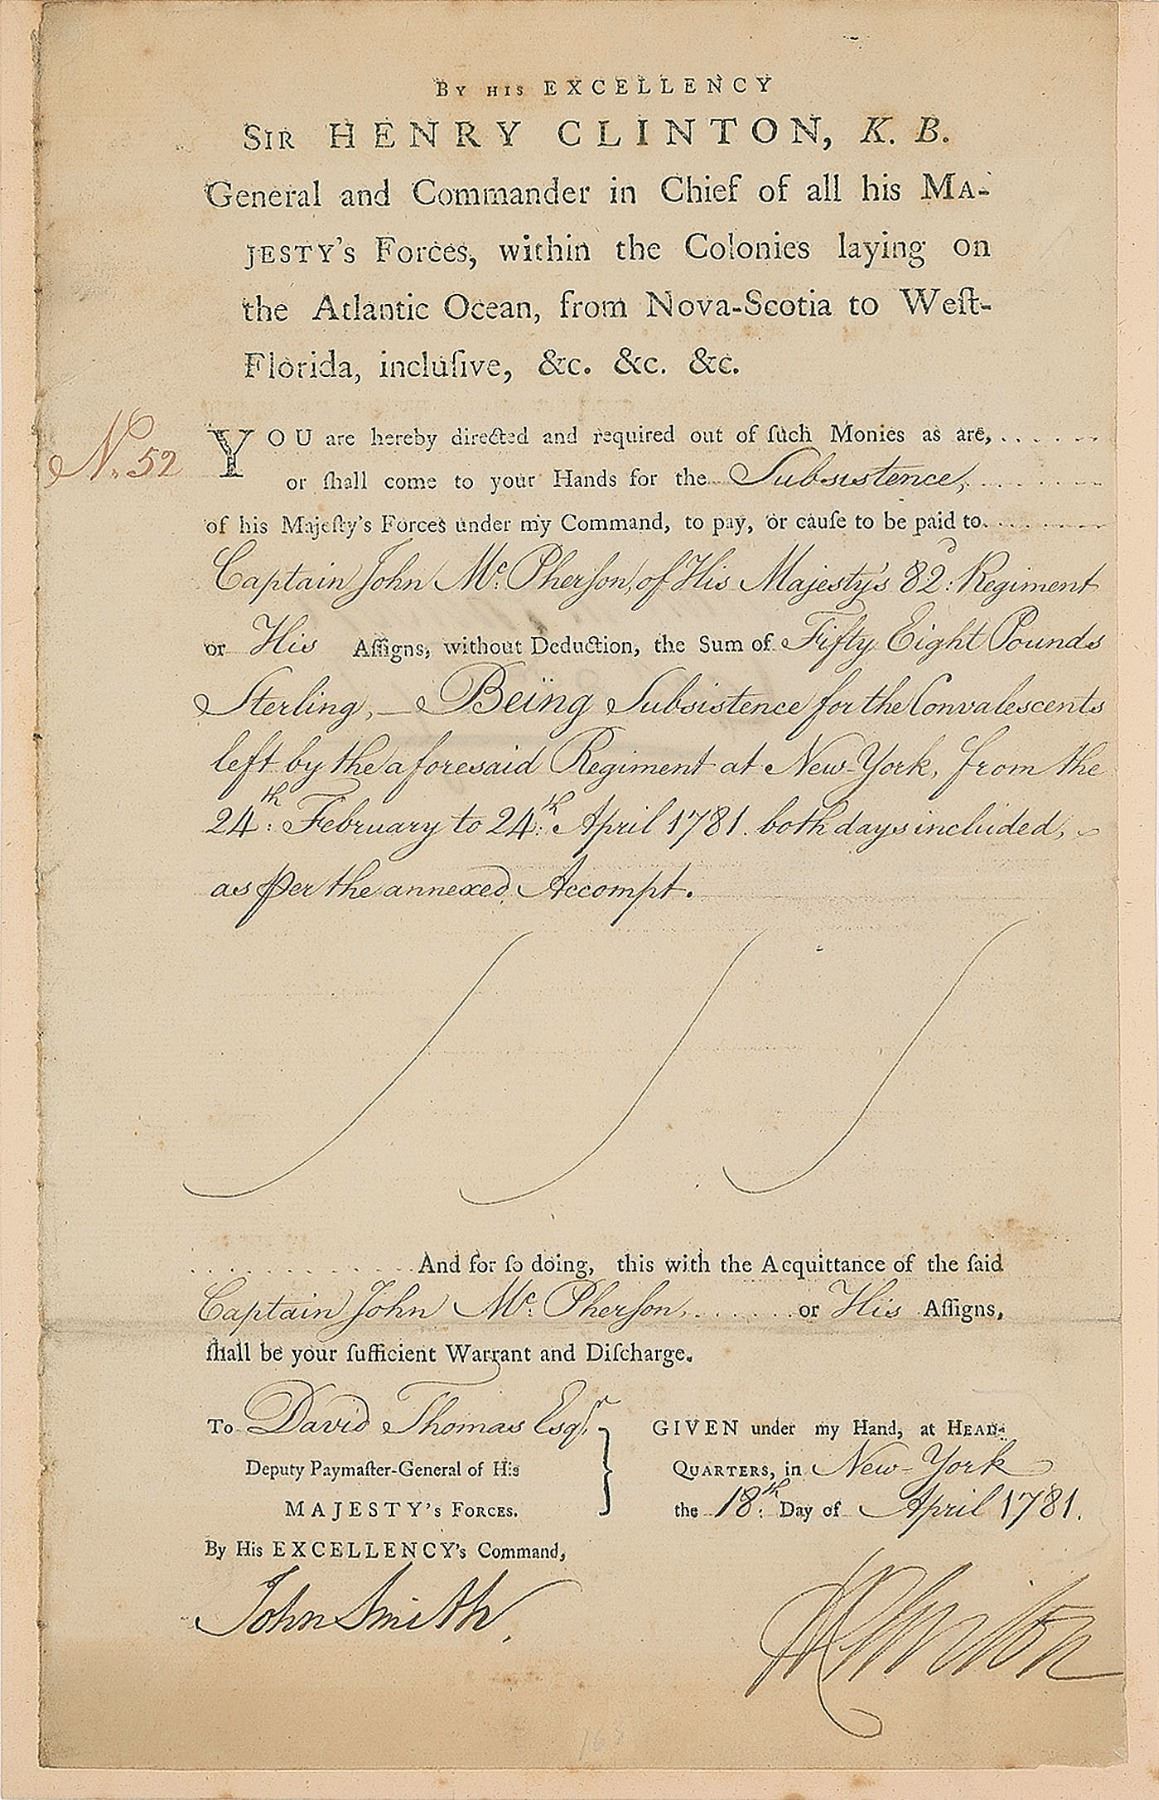 By his EXCELLENCY
Sir HENRY CLINTON, K. B.
General and Commander in Chief of all his Ma-
jesty's Forces, within the Colonies laying on
the Atlantic Ocean, from Nova-Scotia to Weſt-
Florida, incluſive, &c. &c. &c.
N. 52
YOU are hereby directed and required out of ſuch Monies as are,
or ſhall come to your Hands for the Subsistence,
of his Majeſty's Forces under my Command, to pay, or cauſe to be paid to
Captain John Mc. Pherſon, of His Majesty's 82d: Regiment
or His Aſſigns, without Deduction, the Sum of Fifty Eight Pounds
Sterling, — Beïng Subsistence for the Convalescents
left by the aforesaid Regiment at New-York, from the
24th: February to 24th: April 1781. both days included,
as Per the annexed Accompt.
And for ſo doing, this with the Acquittance of the ſaid
Captain John Mc. Pherſon, or His Aſſigns,
ſhall be your ſufficient Warrant and Diſcharge.
To David Thomas Esqr.
Deputy Paymaſter-General of His
MAJESTY's Forces.
GIVEN under my Hand, at Head-
Quarters, in New-York
the 18th: Day of April 1781.
By His EXCELLENCY's Command,
John Smith.
HClinton